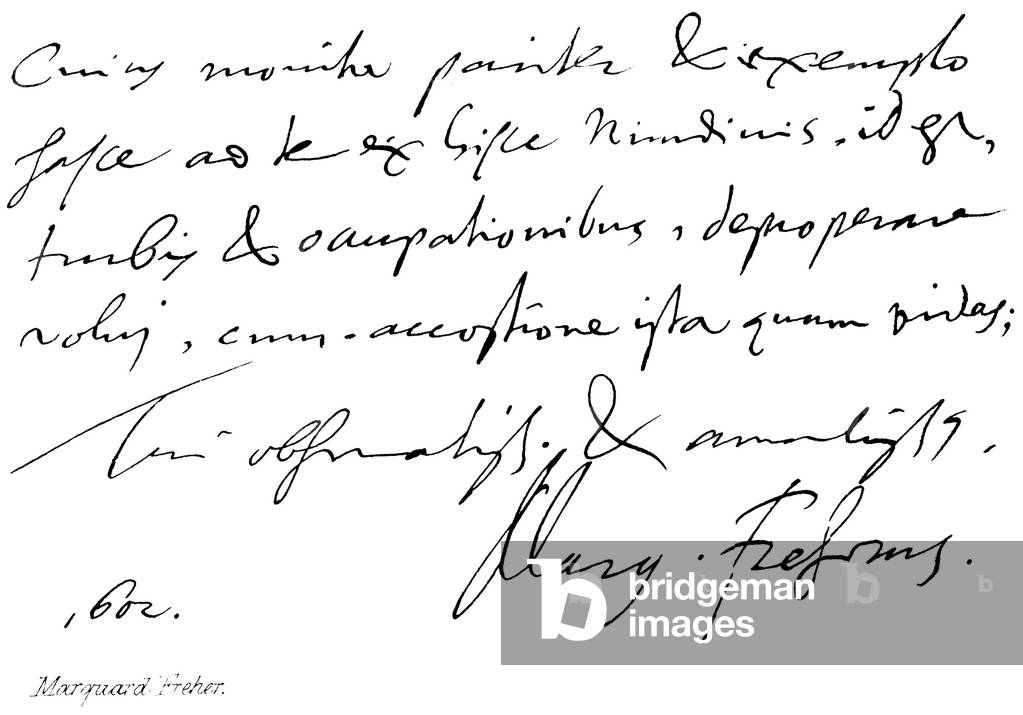 Cuius monitu pariter & exemplo
hasce ad te ex hisce Nundinis, id est,
turbis & occupationibus, deproperare
volui, cum accessione ista quam vides;
Tui observatiss. & amantiss
Marq. Freherus.
1602.
Marquard Freher.
bridgeman
images